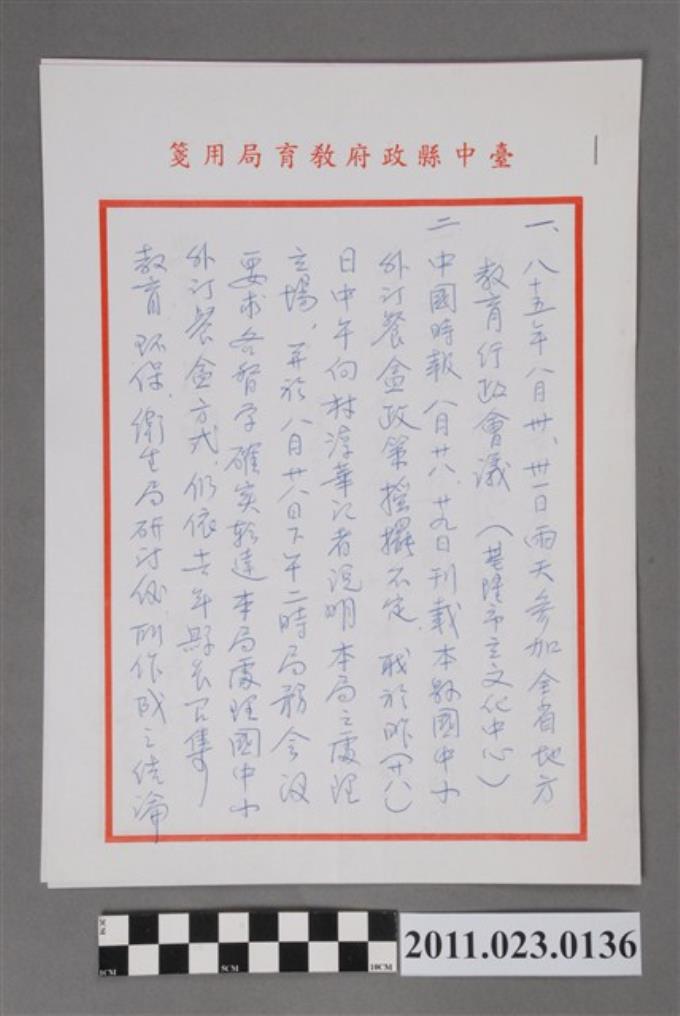 臺中縣政府教育局用箋
一、八十五年八月卅、卅一日兩天參加全省地方
教育行政會議（基隆市立文化中心）
二 中國時報八月廿八、廿九日刊載本縣國中小
外訂餐盒政策搖擺不定，我於昨（廿八）
日中午向林淳華記者說明本局之處理
立場，并於八月廿八日下午二時局務會議
要求各督學確實轉達本局處理國中小
外訂餐盒方式，仍依去年縣長召集
教育、环保、衛生局研討後，所作成之結論
2011.023.0136
1CM
5CM
10CM